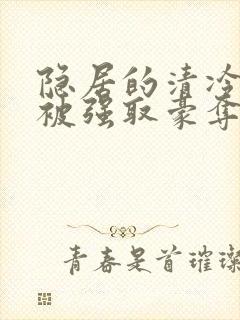 隐居的清冷
被强取豪夺
青春是首璀璨